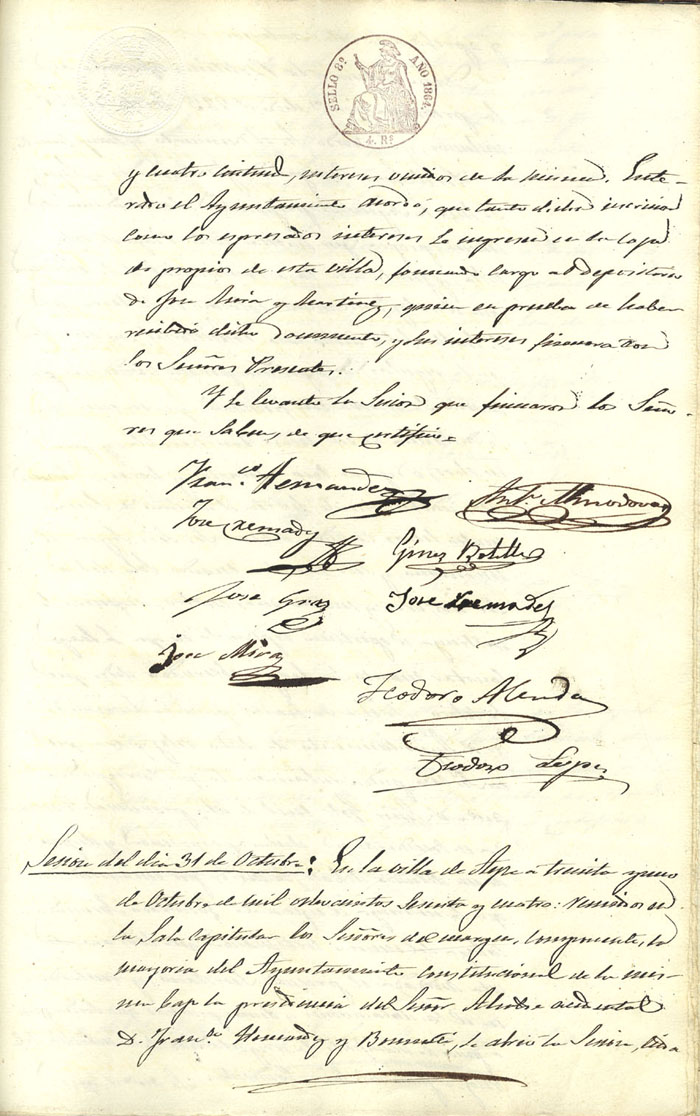 SELLO 8º AÑO 1864.
4. Rs
y cuatro centimos, intereses vencidos de la misma. Ente-
rado el Ayuntamiento acordó, que tanto dicha inscripcion
como los espresados intereses se ingresen en la caja
de propios de esta villa, formando cargo al Depositario
D. José Mira y Martinez, quien en prueba de haber
recibido dicho documento, y sus intereses firmara con
los Señores Presentes.
Y se levanto la Sesion que firmaron los Seño-
res que saben, de que certifico=
Franco Hernandez
Anto Almodovar
Jose Cremades
Gines Botella
Jose
Jose Cremades
Jose Mira
Teodoro Alenda
Teodoro Lopez
Sesion del dia 31 de Octubre: En la villa de Aspe a treinta y uno
de Octubre de mil ochocientos sesenta y cuatro: reunidos en
la Sala Capitular los Señores del margen, componentes la
mayoria del Ayuntamiento constitucional de la mis-
ma bajo la presidencia del Señor Alcalde accidental
D. Franco Hernandez y, se abrio la Sesion,